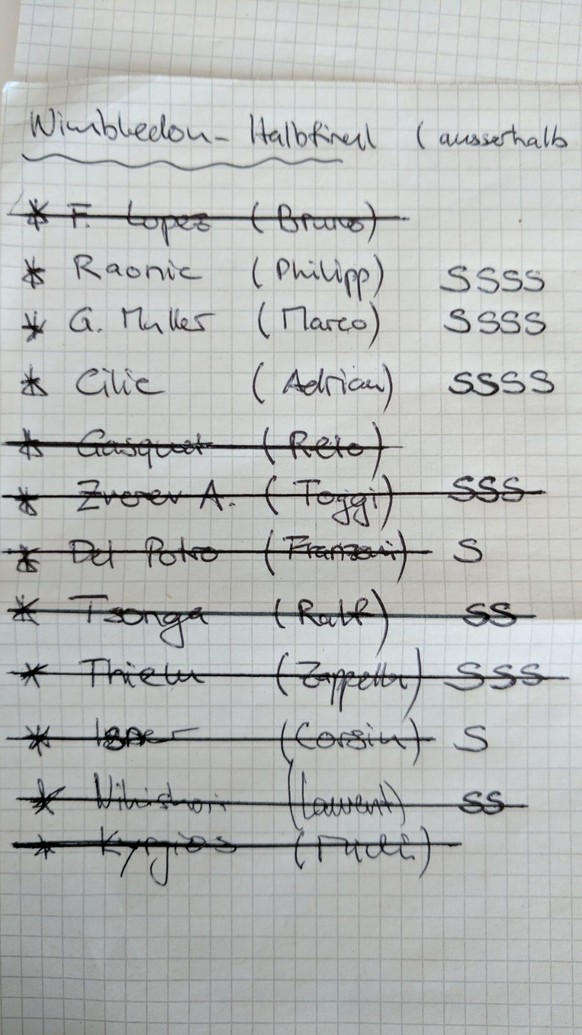 Wimbledon - Halbfinal (ausserhalb
* F. Lopez (Bruno)
* Raonic (Philipp) SSSS
* G. Muller (Marco) SSSS
* Cilic (Adrian) SSSS
* Gasquet (Reto)
* Zverev A. (Toggi) SSS
* Del Potro (Franzoni) S
* Tsonga (Ralf) SS
* Thiem (Zappella) SSS
* Isner (Corsin) S
* (Laurent) SS
* Kyrgios